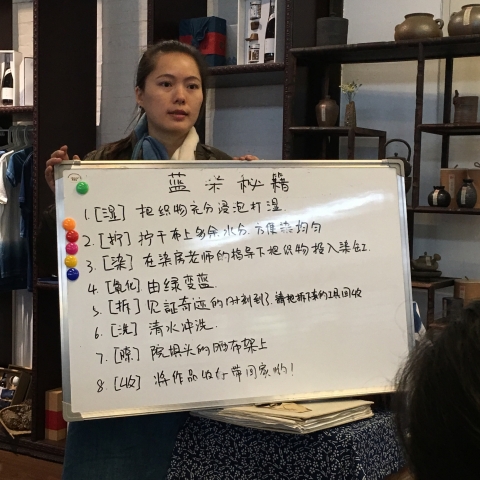 蓝染秘籍
1. [湿] 把织物充分浸泡打湿.
2. [拧] 拧干布上多余水分.方便染均匀
3. [染] 在染房老师的指导下把织物投入染缸.
4. [氧化] 由绿变蓝
5. [拆] 见证奇迹的时刻到了.请把拆下来的工具回收
6. [洗] 清水冲洗.
7. [晾] 院坝头的晒布架上
8. [收] 将作品收好带回家哟!